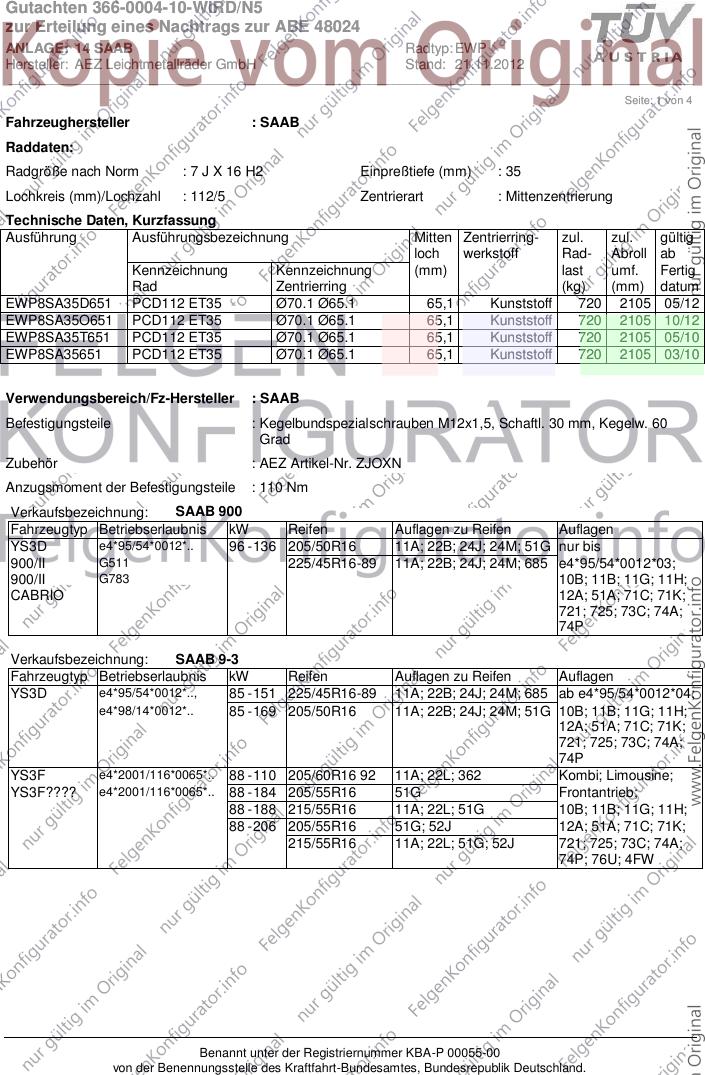 Gutachten 366-0004-10-WIRD/N5
zur Erteilung eines Nachtrags zur ABE 48024
ANLAGE: 14 SAAB Radtyp: EWP
Hersteller: AEZ Leichtmetallräder GmbH Stand: 21.11.2012
TÜV
AUSTRIA
Kopie vom Original
Seite: 1 von 4
Fahrzeughersteller : SAAB
Raddaten:
Radgröße nach Norm : 7 J X 16 H2 Einpreßtiefe (mm) : 35
Lochkreis (mm)/Lochzahl : 112/5 Zentrierart : Mittenzentrierung
Technische Daten, Kurzfassung
Ausführung Ausführungsbezeichnung Mitten Zentrierring- zul. zul. gültig
loch werkstoff Rad- Abroll ab
Kennzeichnung Kennzeichnung (mm) last umf. Fertig
Rad Zentrierring (kg) (mm) datum
EWP8SA35D651 PCD112 ET35 Ø70.1 Ø65.1 65,1 Kunststoff 720 2105 05/12
EWP8SA35O651 PCD112 ET35 Ø70.1 Ø65.1 65,1 Kunststoff 720 2105 10/12
EWP8SA35T651 PCD112 ET35 Ø70.1 Ø65.1 65,1 Kunststoff 720 2105 05/10
EWP8SA35651 PCD112 ET35 Ø70.1 Ø65.1 65,1 Kunststoff 720 2105 03/10
FELGEN
KONFIGURATOR
Verwendungsbereich/Fz-Hersteller : SAAB
Befestigungsteile : Kegelbundspezialschrauben M12x1,5, Schaftl. 30 mm, Kegelw. 60
Grad
Zubehör : AEZ Artikel-Nr. ZJOXN
Anzugsmoment der Befestigungsteile : 110 Nm
FelgenKonfigurator.info
Verkaufsbezeichnung: SAAB 900
Fahrzeugtyp Betriebserlaubnis kW Reifen Auflagen zu Reifen Auflagen
YS3D e4*95/54*0012*.. 96 -136 205/50R16 11A; 22B; 24J; 24M; 51G nur bis
900/II G511 225/45R16-89 11A; 22B; 24J; 24M; 685 e4*95/54*0012*03;
900/II G783 10B; 11B; 11G; 11H;
CABRIO 12A; 51A; 71C; 71K;
721; 725; 73C; 74A;
74P
Verkaufsbezeichnung: SAAB 9-3
Fahrzeugtyp Betriebserlaubnis kW Reifen Auflagen zu Reifen Auflagen
YS3D e4*95/54*0012*.., 85 -151 225/45R16-89 11A; 22B; 24J; 24M; 685 ab e4*95/54*0012*04;
e4*98/14*0012*.. 85 -169 205/50R16 11A; 22B; 24J; 24M; 51G 10B; 11B; 11G; 11H;
12A; 51A; 71C; 71K;
721; 725; 73C; 74A;
74P
YS3F e4*2001/116*0065*.. 88 -110 205/60R16 92 11A; 22L; 362 Kombi; Limousine;
YS3F???? e4*2001/116*0065*.. 88 -184 205/55R16 51G Frontantrieb;
88 -188 215/55R16 11A; 22L; 51G 10B; 11B; 11G; 11H;
88 -206 205/55R16 51G; 52J 12A; 51A; 71C; 71K;
215/55R16 11A; 22L; 51G; 52J 721; 725; 73C; 74A;
74P; 76U; 4FW
nur gültig im Original
www.FelgenKonfigurator.info
Benannt unter der Registriernummer KBA-P 00055-00
von der Benennungsstelle des Kraftfahrt-Bundesamtes, Bundesrepublik Deutschland.